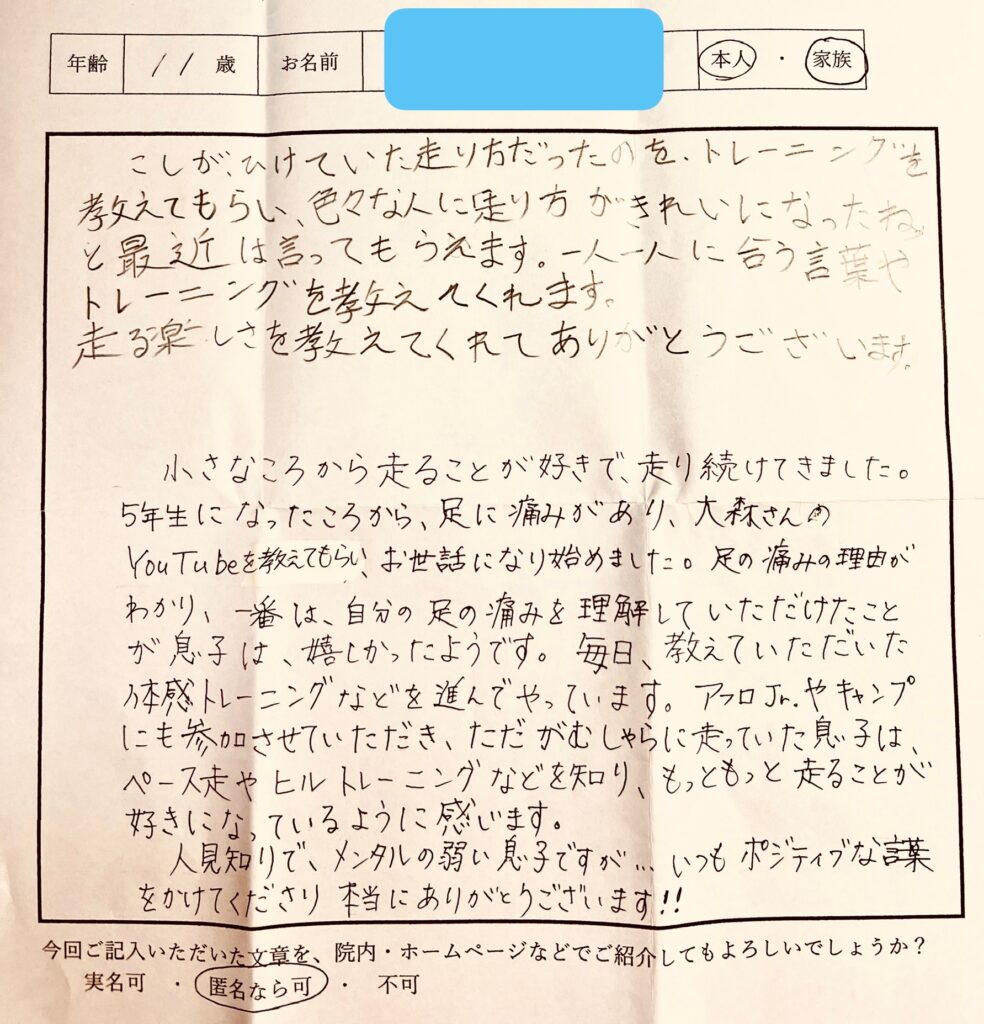 年齢 11 歳 お名前 本人 ・ 家族
こしが、ひけていた走り方だったのを、トレーニングを
教えてもらい、色々な人に走り方がきれいになったね
と最近は言ってもらえます。一人一人に合う言葉や
トレーニングを教えてくれます。
走る楽しさを教えてくれてありがとうございます。
小さなころから走ることが好きで、走り続けてきました。
5年生になったころから、足に痛みがあり、大森さんの
YouTubeを教えてもらい、お世話になり始めました。足の痛みの理由が
わかり、一番は、自分の足の痛みを理解していただけたこと
が息子は、嬉しかったようです。毎日、教えていただいた
体感トレーニングなどを進んでやっています。アフロJr.やキャンプ
にも参加させていただき、ただがむしゃらに走っていた息子は、
ペース走やヒルトレーニングなどを知り、もっともっと走ることが
好きになっているように感じます。
人見知りで、メンタルの弱い息子ですが…いつもポジティブな言葉
をかけてくださり本当にありがとうございます!!
今回ご記入いただいた文章を、院内・ホームページなどでご紹介してもよろしいでしょうか？
実名可 ・ 匿名なら可 ・ 不可